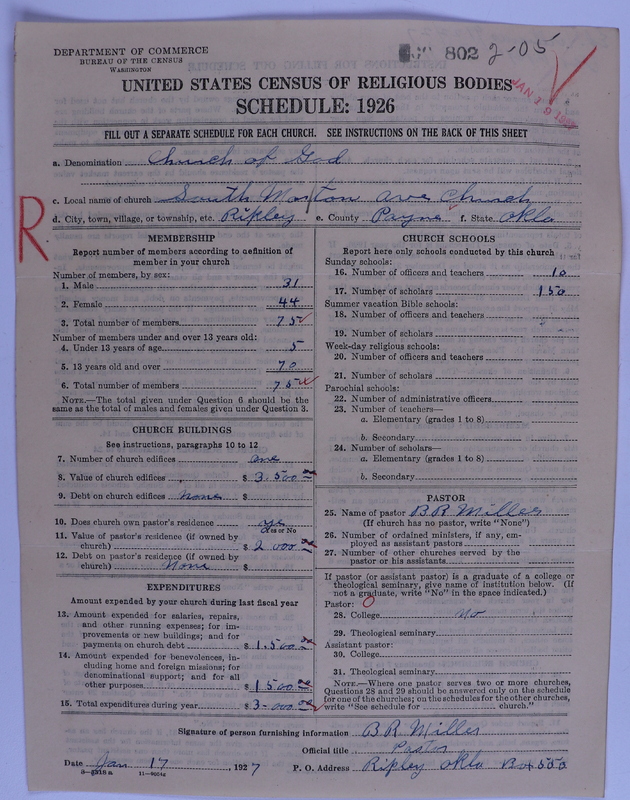 DEPARTMENT OF COMMERCE
BUREAU OF THE CENSUS
WASHINGTON
802 2-05
JAN 19
UNITED STATES CENSUS OF RELIGIOUS BODIES
SCHEDULE: 1926
FILL OUT A SEPARATE SCHEDULE FOR EACH CHURCH. SEE INSTRUCTIONS ON THE BACK OF THIS SHEET
a. Denomination Church of God
c. Local name of church South Ave Church
d. City, town, village, or township, etc. Ripley e. County Payne f. State Okla
R
MEMBERSHIP
Report number of members according to definition of
member in your church
Number of members, by sex:
1. Male 31
2. Female 44
3. Total number of members 75
Number of members under and over 13 years old:
4. Under 13 years of age 5
5. 13 years old and over 70
6. Total number of members 75
NOTE.—The total given under Question 6 should be the
same as the total of males and females given under Question 3.
CHURCH BUILDINGS
See instructions, paragraphs 10 to 12
7. Number of church edifices one
8. Value of church edifices $ 3.500 00
9. Debt on church edifices none $
10. Does church own pastor's residence yes
Yes or No
11. Value of pastor's residence (if owned by
church) $ 2 000 00
12. Debt on pastor's residence (if owned by
church) None $
EXPENDITURES
Amount expended by your church during last fiscal year
13. Amount expended for salaries, repairs,
and other running expenses; for im-
provements or new buildings; and for
payments on church debt $ 1.500 00
14. Amount expended for benevolences, in-
cluding home and foreign missions; for
denominational support; and for all
other purposes $ 1500 00
15. Total expenditures during year $ 3-000 00
CHURCH SCHOOLS
Report here only schools conducted by this church
Sunday schools:
16. Number of officers and teachers 10
17. Number of scholars 150
Summer vacation Bible schools:
18. Number of officers and teachers
19. Number of scholars
Week-day religious schools:
20. Number of officers and teachers
21. Number of scholars
Parochial schools:
22. Number of administrative officers
23. Number of teachers—
a. Elementary (grades 1 to 8)
b. Secondary
24. Number of scholars—
a. Elementary (grades 1 to 8)
b. Secondary
PASTOR
25. Name of pastor B R Miller
(If church has no pastor, write "None")
26. Number of ordained ministers, if any, em-
ployed as assistant pastors
27. Number of other churches served by the
pastor or his assistants
If pastor (or assistant pastor) is a graduate of a college or
theological seminary, give name of institution below. (If
not a graduate, write "No" in the space indicated.)
Pastor: O
28. College No
29. Theological seminary
Assistant pastor:
30. College
31. Theological seminary
NOTE.—Where one pastor serves two or more churches,
Questions 28 and 29 should be answered only on the schedule
for one of the churches; on the schedules for the other churches,
write "See schedule for church."
Signature of person furnishing information B R Miller
Official title Pastor
Date Jan 17, 1927 P. O. Address Ripley Okla Box 550
8-5918 a 11-9604d